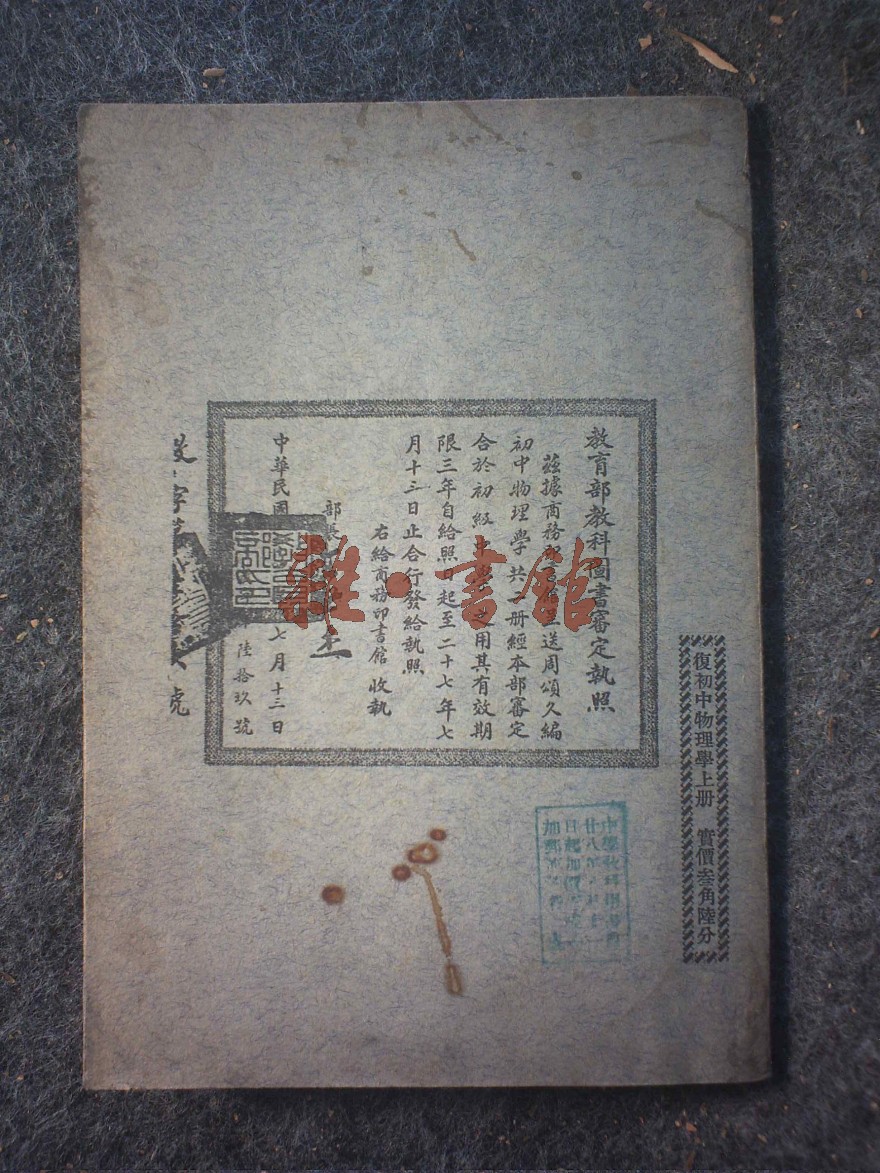 教育部教科圖書審定執照
茲據商務印書館呈送周頌久編
初中物理學共二册經本部審定
合於初級中學之用其有效期
限三年自給照日起至二十七年七
月十三日止合行發給執照
右給商務印書館收執
部長
中華民國 七月十三日
陸拾玖號
教 字 號
雜·書館
復初中物理學上册 實價叁角陸分
廿八
日起加
加